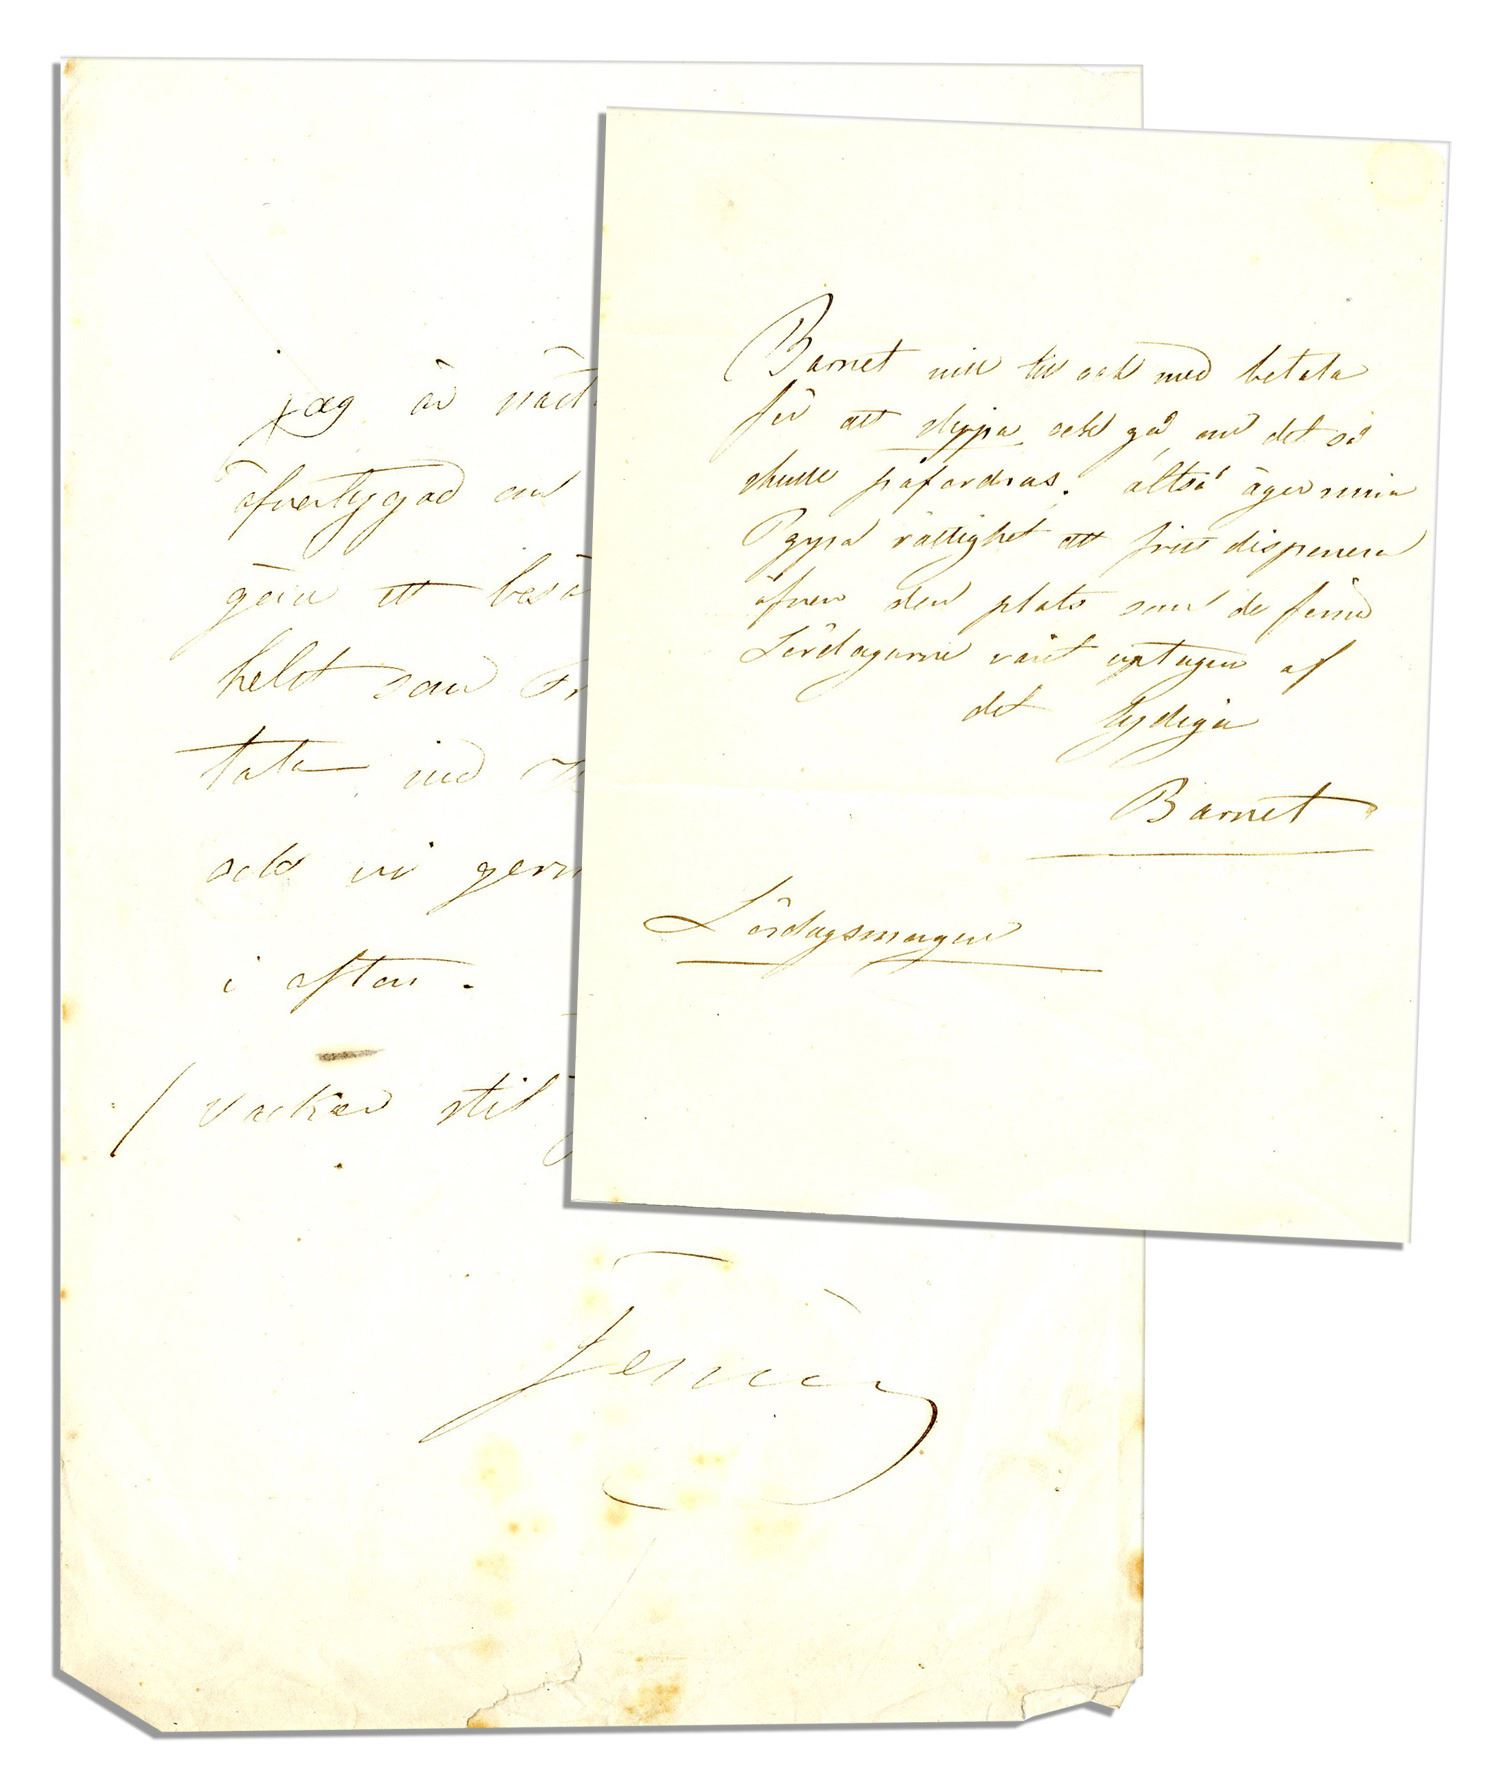 jag är
öfvertygad om
göra ett
helst som
tala med
och vi gerna
i afton.
(vacker stil
Jenny
Barnet vill till och med betala
för att slippa och gå, om det så
skulle påfordras. altså äger min
rättighet att fritt disponera
öfver den plats som de förra
Lördagarne varit uptagen af
det lydiga
Barnet
Lördagsmorgon